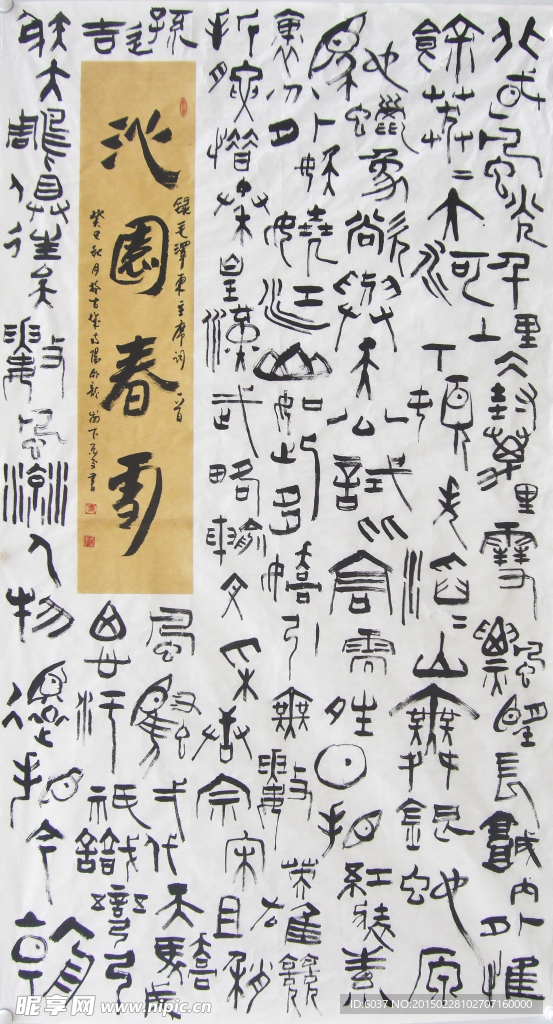 北國風光千里冰封萬里雪飄望長城內外惟
餘莽二大河上下頓失滔二山舞銀蛇原
馳蠟象欲與天公試比高需晴日看紅裝素
裹分外妖嬈江山如此多嬌引無數英雄競
折腰惜秦皇漢武略輸文采唐宗宋且稍
遜風騷弌代天驕
吉思汗祇識彎弓
射大鵰俱往矣數風流人物還看今朝
沁園春雪
錄毛澤東主席詞一首
癸巳秋月於古南陽臥龍崗下書
昵享网 www.nipic.cn
ID:6037 NO:20150228102707160000